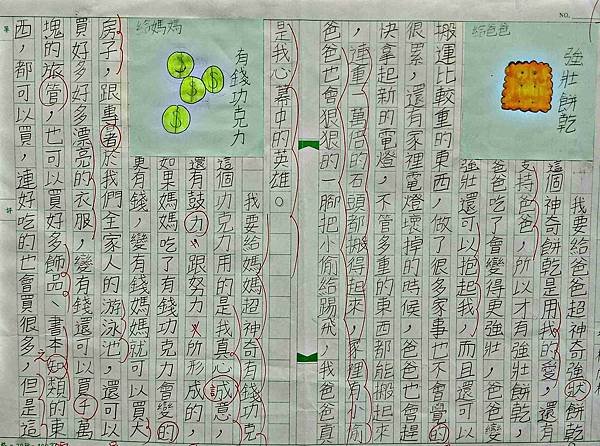 NO.
給爸爸
強壯餅乾
我要給爸爸超神奇強狀餅乾，
這個神奇餅乾是用我的愛，還有
支持爸爸，所以才有強壯餅乾，
爸爸吃了會變得更強壯，爸爸變
強壯還可以抱起我，而且還可以
搬運比較重的東西，做了很多家事也不會覺的
很累，還有家裡電燈壞掉的時候，爸爸也會趕
快拿起新的電燈，不管多重的東西都能搬起來
，連重一萬倍的石頭都搬得起來，家裡有小偷
爸爸也會狠狠的一腳把小偷給踢飛，我爸爸真
是我心幕中的英雄。
給媽媽
有錢功克力
我要給媽媽超神奇有錢功克
這個功克力用的是我真心誠意，
還有鼓力，跟努力，所形成的，
如果媽媽吃了有錢功克力會變的
更有錢，變有錢媽媽就可以買大
房子，跟專署於我們全家人的游泳池，還可以
買好多好多漂亮的衣服，變有錢還可以買千萬
塊的旅管，也可以買好多飾品、書本類的東
西，都可以買，連好吃的也會買很多，但是這